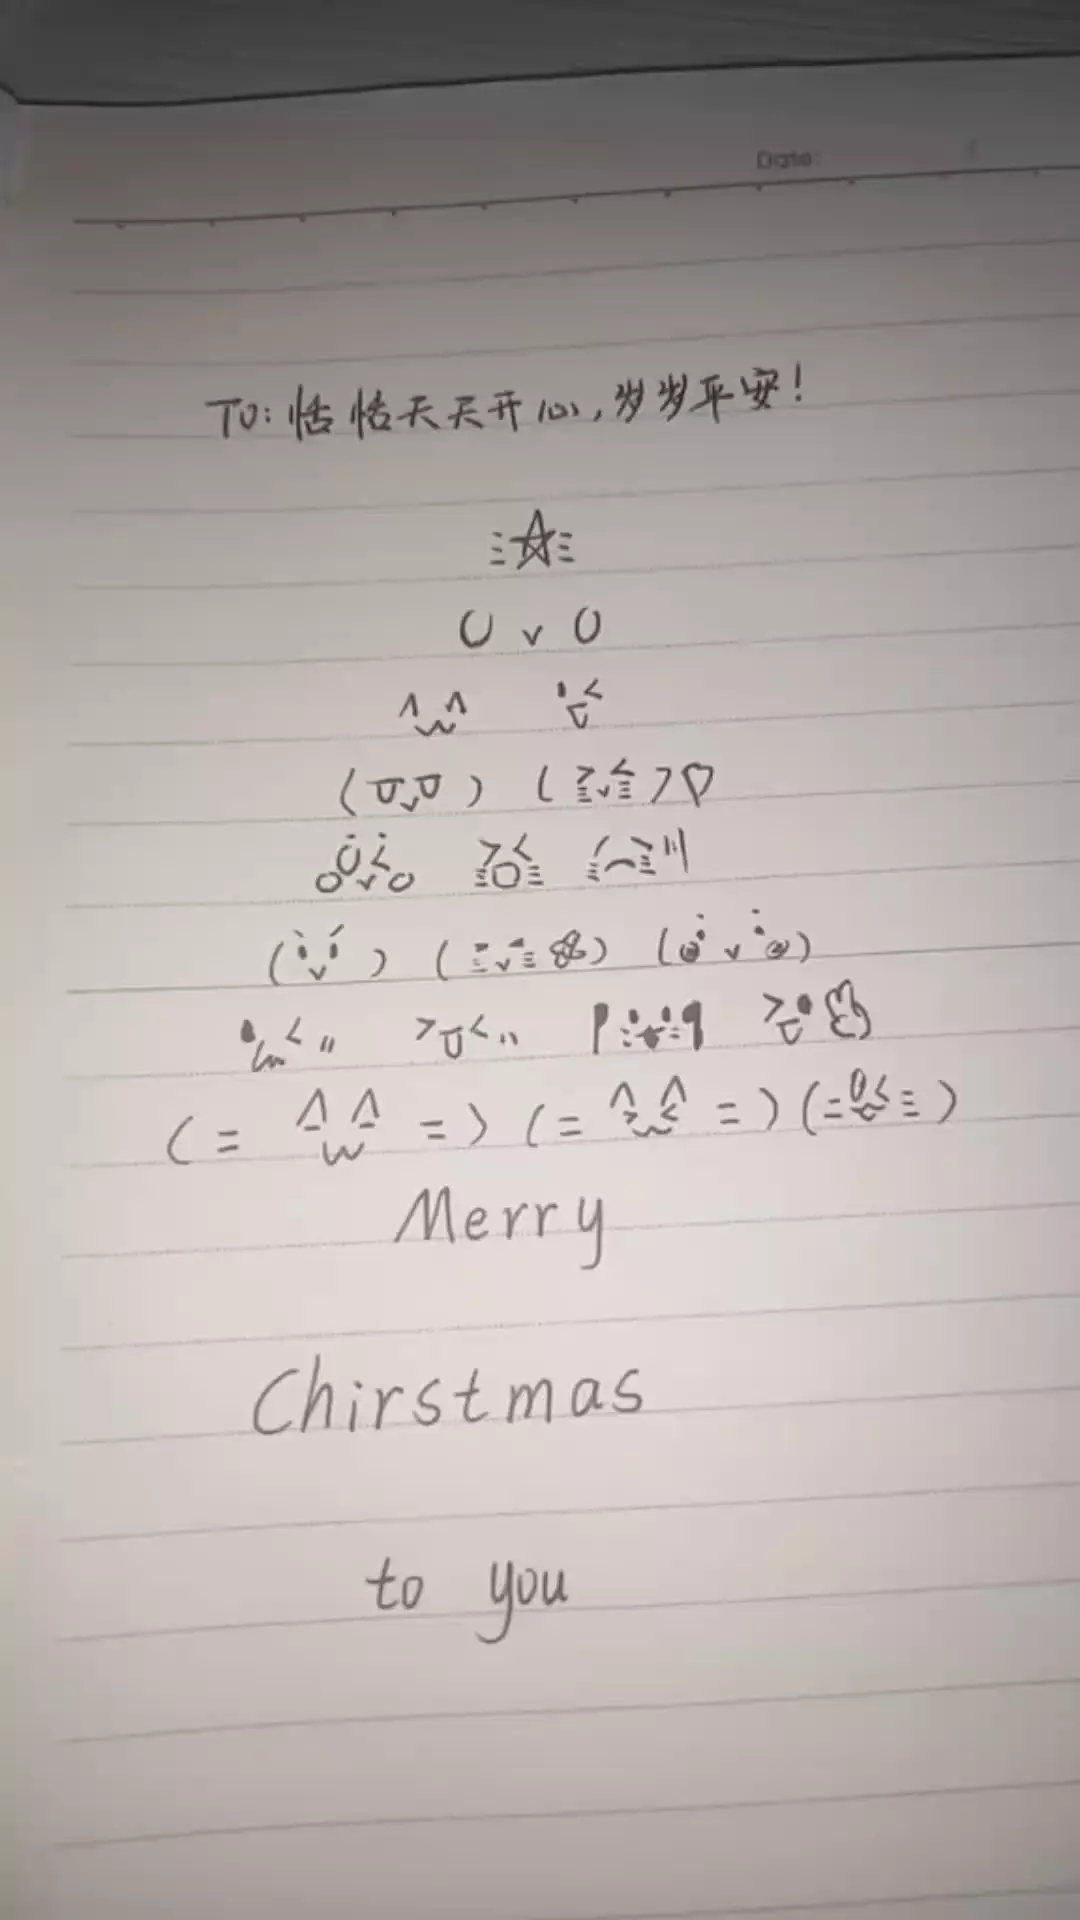 Date:
TO: 恬恬天天开心,岁岁平安!
U v U
Merry
Chirstmas
to you